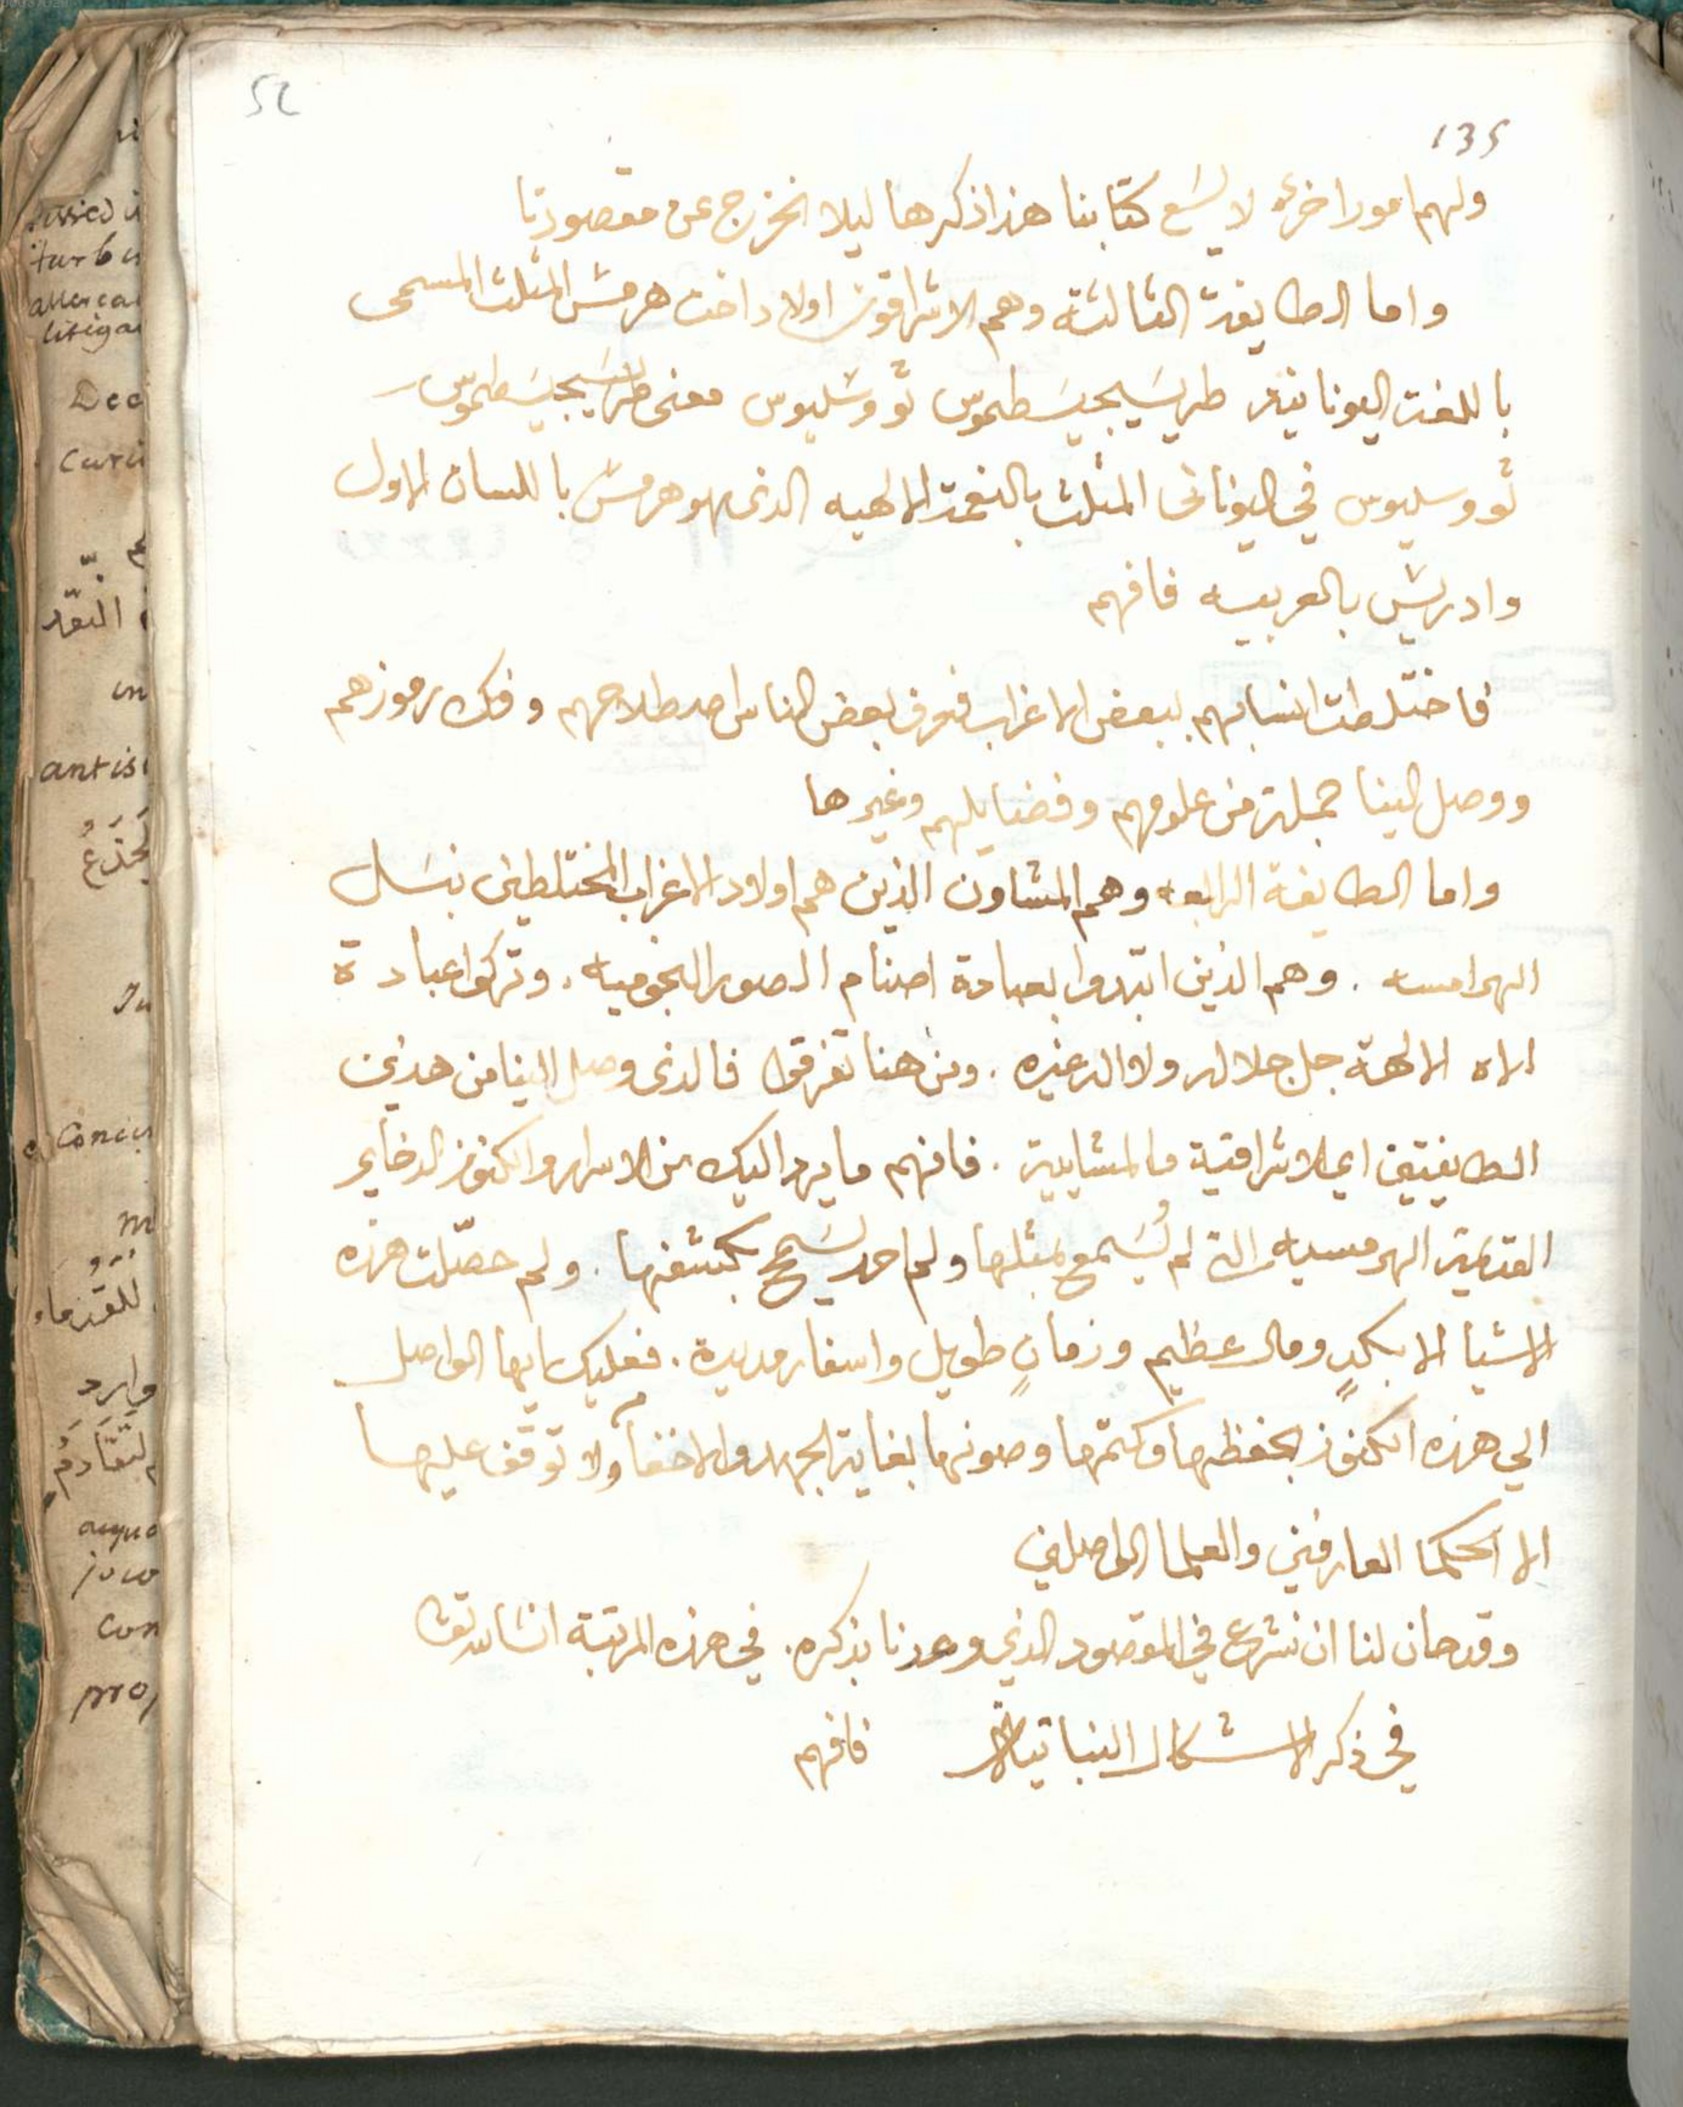 52
135
ولهم امور اخرى لا يسَع كتابنا هذا ذكرها ليلا نخرج عن مقصودنا
واما الطايفة الثالثة وهم الاشراقون اولاد اخت هرمس المثلث المسمى
باللغت اليونانية طريسَيجيسَطموس ثووسليوس معنى طريسَيجيسَطموس
ثووسليوس في اليونانى المثلث بالنعمة الالهيه الذى هو هرمس باللسان الاول
وادريس بالعربيه فافهم
فاختلطت انسابهم ببعض الاغراب فعرف بعض الناس اصطلاحهم وفك رموزهم
ووصل الينا جملة من علومهم وفضايلهم وغيرها
واما الطايفة الرابعه وهم المشاون الذين هم اولاد الاغراب المختلطين بنسَل
الهرامسه . وهم الذين ابتدوا بعبادة اصنام الصور النجوميه . وتركوا عبادة
الاه الالهة جل جلاله ولا اله غيره . ومن هنا تفرقوا فالذى وصل الينا من هذين
الطايفتين اي الاشراقية والمشايية . فافهم ما يرد اليك من الاسرار والكنوز الدخاير
القديمة الهرمسيه التي لم يُسَمع بمثلها ولم احد يسَمح بكشفها . ولم حصّلت هذه
الاشيا الا بكدٍ ومال عظيم وزمانٍ طويل واسفار مديدة . فعليك ايها الواصل
الي هذه الكنوز بحفظها وكتمها وصونها بغاية الجهد والاخفآ ولا توقف عليها
الا الحكما العارفين والعلما الواصلين
وقد حان لنا ان نشرع في المقصود الذي وعدنا بذكره . في هذه المرتبة انشا الله تعا
في ذكر الاشكال النباتية فافهم